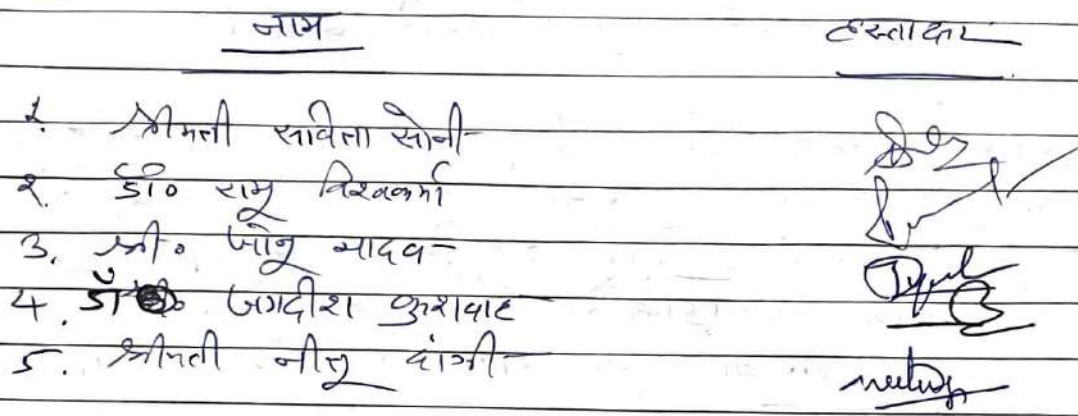 नाम हस्ताक्षर
१. श्रीमती सविता सोनी
२. डॉ० रामू विश्वकर्मा
3. श्री० जोनू यादव
4. डॉ० जगदीश कुशवाह
5. श्रीमती नीतू दांगी